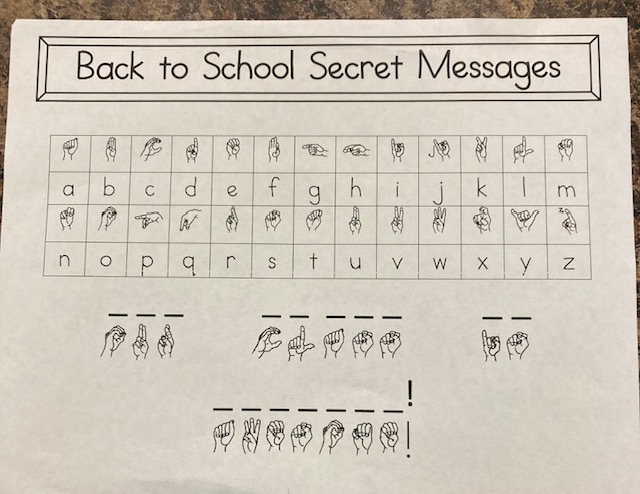 Back to School Secret Messages
a b c d e f g h i j k l m
n o p q r s t u v w x y z
!